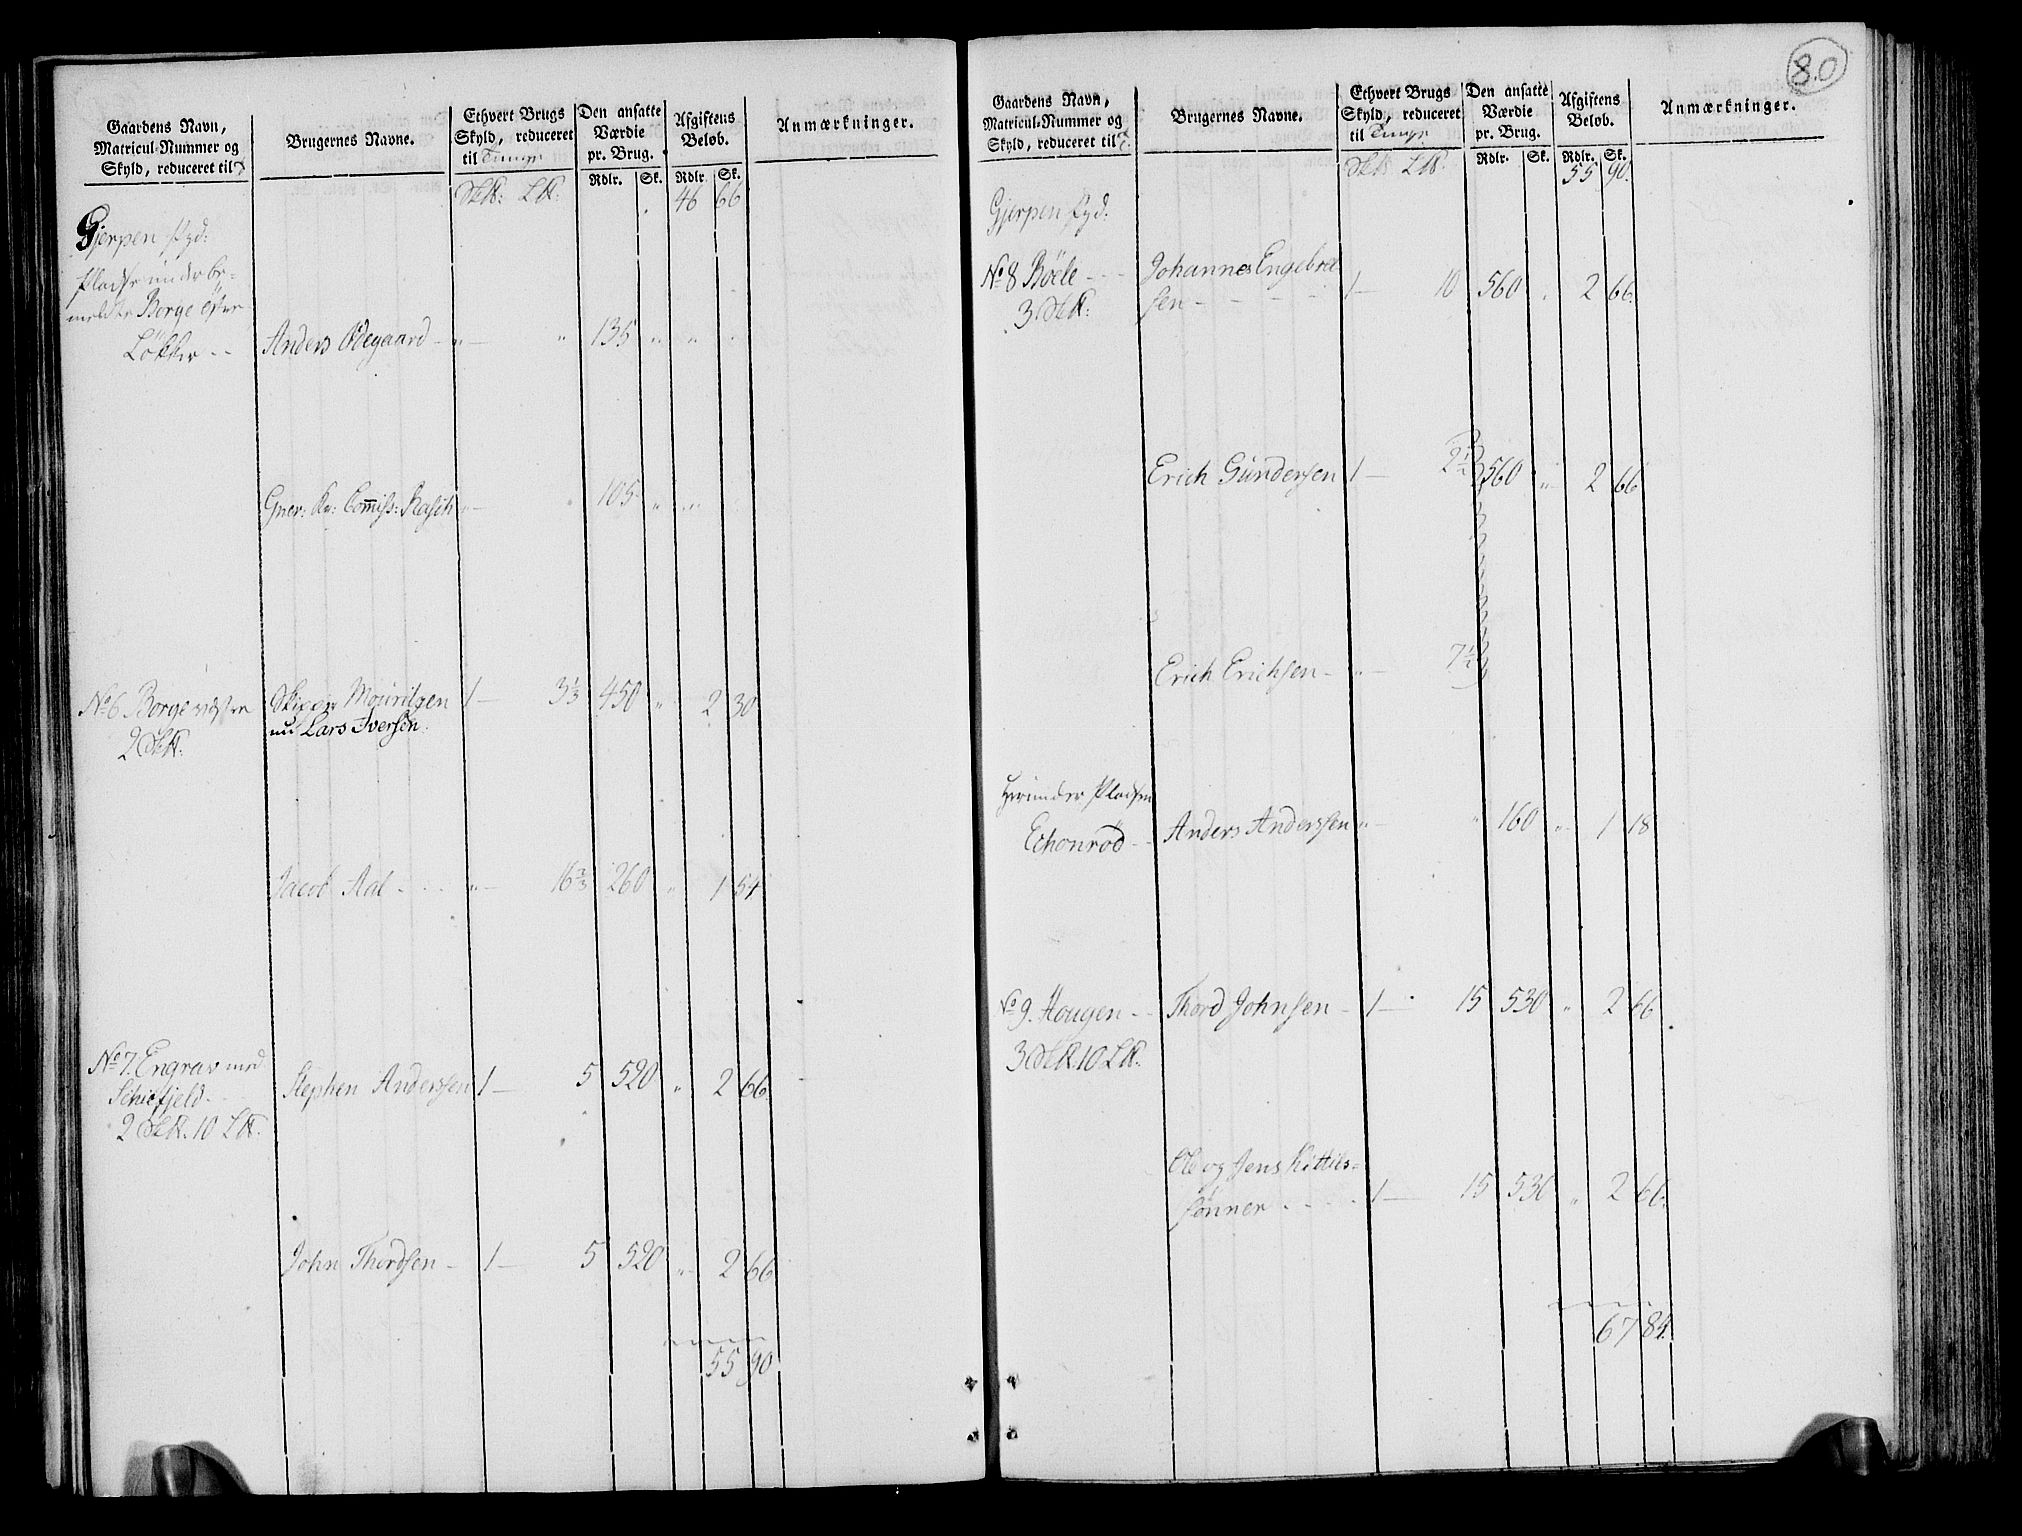 Gaardens Navn,
Matricul-Nummer og
Skyld, reduceret til
Brugernes Navne.
Ethvert Brugs
Skyld, reduceret
til Tunge
Den ansatte
Værdie
pr. Brug.
Rdlr. Sk.
Afgiftens
Beløb.
Rdlr. Sk.
Anmærkninger.
46 66
Gjerpen
Pladse under be-
meldte Borge østre
Løkker -- Anders Ødegaard - " — " 135 " " "
Gner: Kr: Commiss: Rasch " — " 105 "
No 6 Borge vestre Skipper Mouritzen 1 — 3 1/3 450 " 2 30
nu Lars Iversen.
2
Jacob Aal - - - " — 16 2/3 260 " 1 54
No 7. Engrav med Stephen Anderssen 1 — 5 520 " 2 66
Schiefjeld -
2 10
John Thordsen - 1 — 5 520 " 2 66
55 90
80
Gaardens Navn,
Matricul-Nummer og
Skyld, reduceret til
Brugernes Navne.
Ethvert Brugs
Skyld, reduceret
til Tunge
Den ansatte
Værdie
pr. Brug.
Rdlr. Sk.
Afgiftens
Beløb.
Rdlr. Sk.
Anmærkninger.
55 90.
Gjerpen
No 8 Bøele - - - Johannes Engebret
sen - - - - 1 — 10 560 . 2 66.
3
Erich Gundersen 1 — 2 1/2 560 " 2 66
Erich Erichsen - " — 7 1/2
Herunder Pladsen
Echonrød - - Anders Anderssen " — " 160 " 1 18
No 9. Hougen - - Thord Johnsen - 1 — 15 530 " 2 66
3 10
Ole og Jens Kittils=
sønner - - - . 1 — 15 530 " 2 66.
67 84.